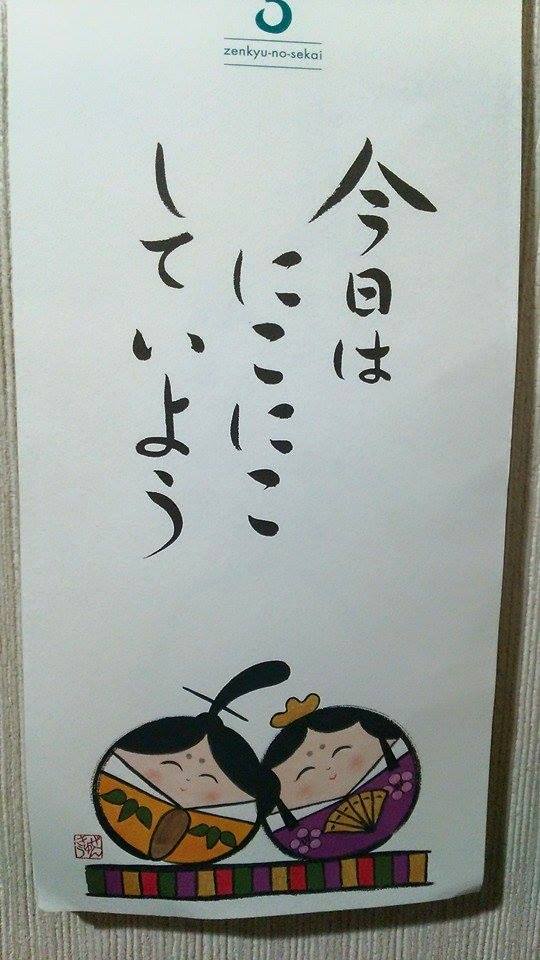 zenkyu-no-sekai
今日は
にこにこ
していよう